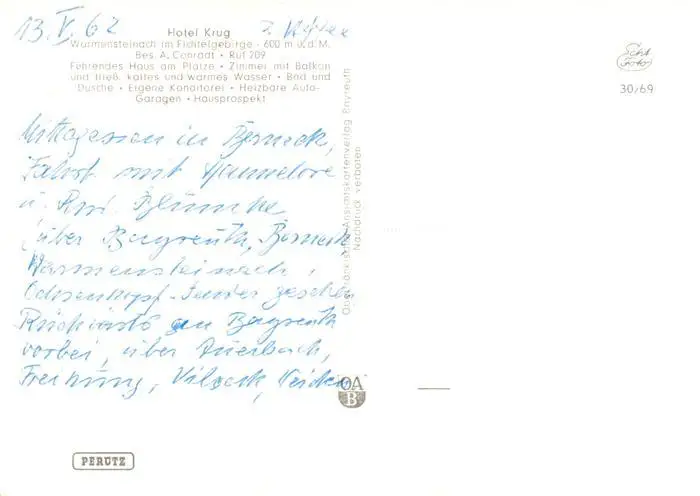 13. V. 62
Hotel Krug
Warmensteinach im Fichtelgebirge · 600 m ü. d. M.
Bes. A. Conradt · Ruf 209
Führendes Haus am Platze · Zimmer mit Balkon
und fließ. kaltes und warmes Wasser · Bad und
Dusche · Eigene Konditorei · Heizbare Auto-
Garagen · Hausprospekt
Echt
Foto
30/69
Mittagessen in Berneck,
Fahrt mit Hannelore
u. Blumke
über Bayreuth, Berneck
Warmensteinach,
Ochsenkopf - Sender gesehen
Rückfahrt an Bayreuth
vorbei, über Auerbach,
Freihung, Vilseck, Weiden
Oberfränkischer Ansichtskartenverlag Bayreuth
Nachdruck verboten
OA
B
PERUTZ